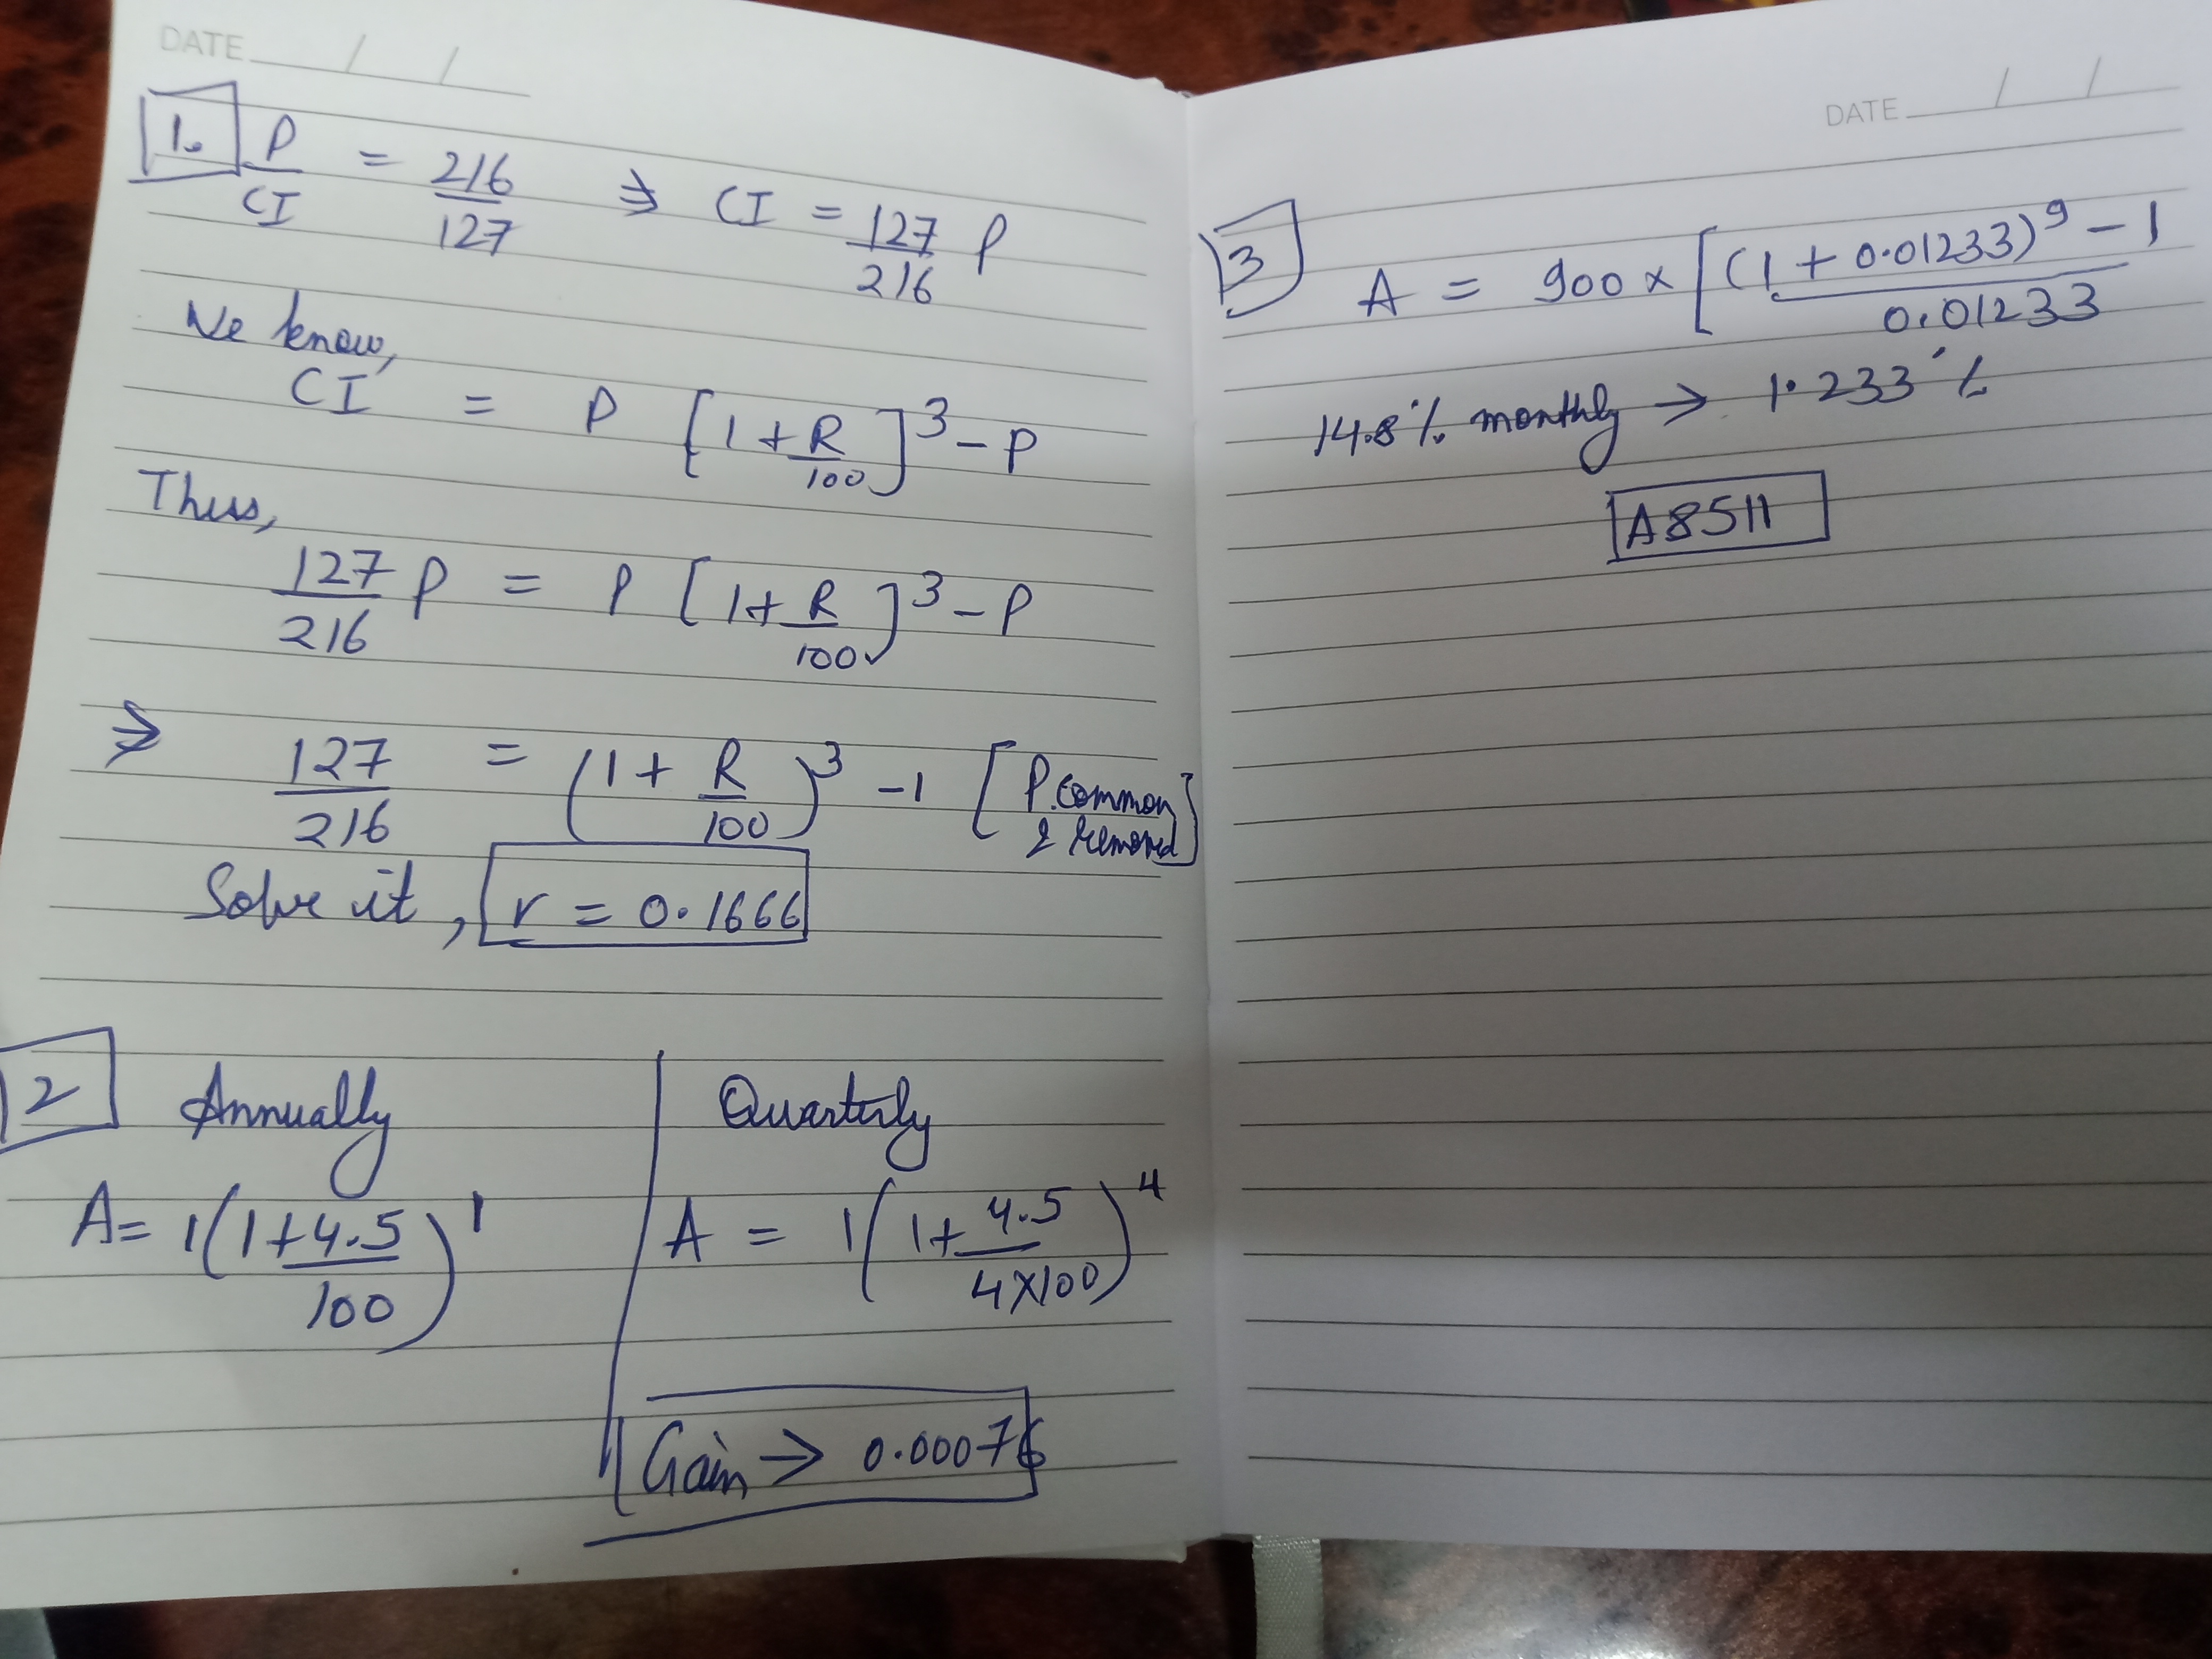 DATE / /
1. P/CI = 216/127 ⇒ CI = 127/216 P
We know,
CI = P [1 + R/100]^3 - P
Thus,
127/216 P = P [1 + R/100]^3 - P
⇒ 127/216 = (1 + R/100)^3 - 1 [P common & removed]
Solve it, r = 0.1666
2 Annually
A = 1(1 + 4.5/100)^1
Quarterly
A = 1(1 + 4.5/4×100)^4
Gain → 0.00076
DATE / /
3 A = 900 × [(1 + 0.01233)^9 - 1 / 0.01233
14.8% monthly → 1.233%
A8511